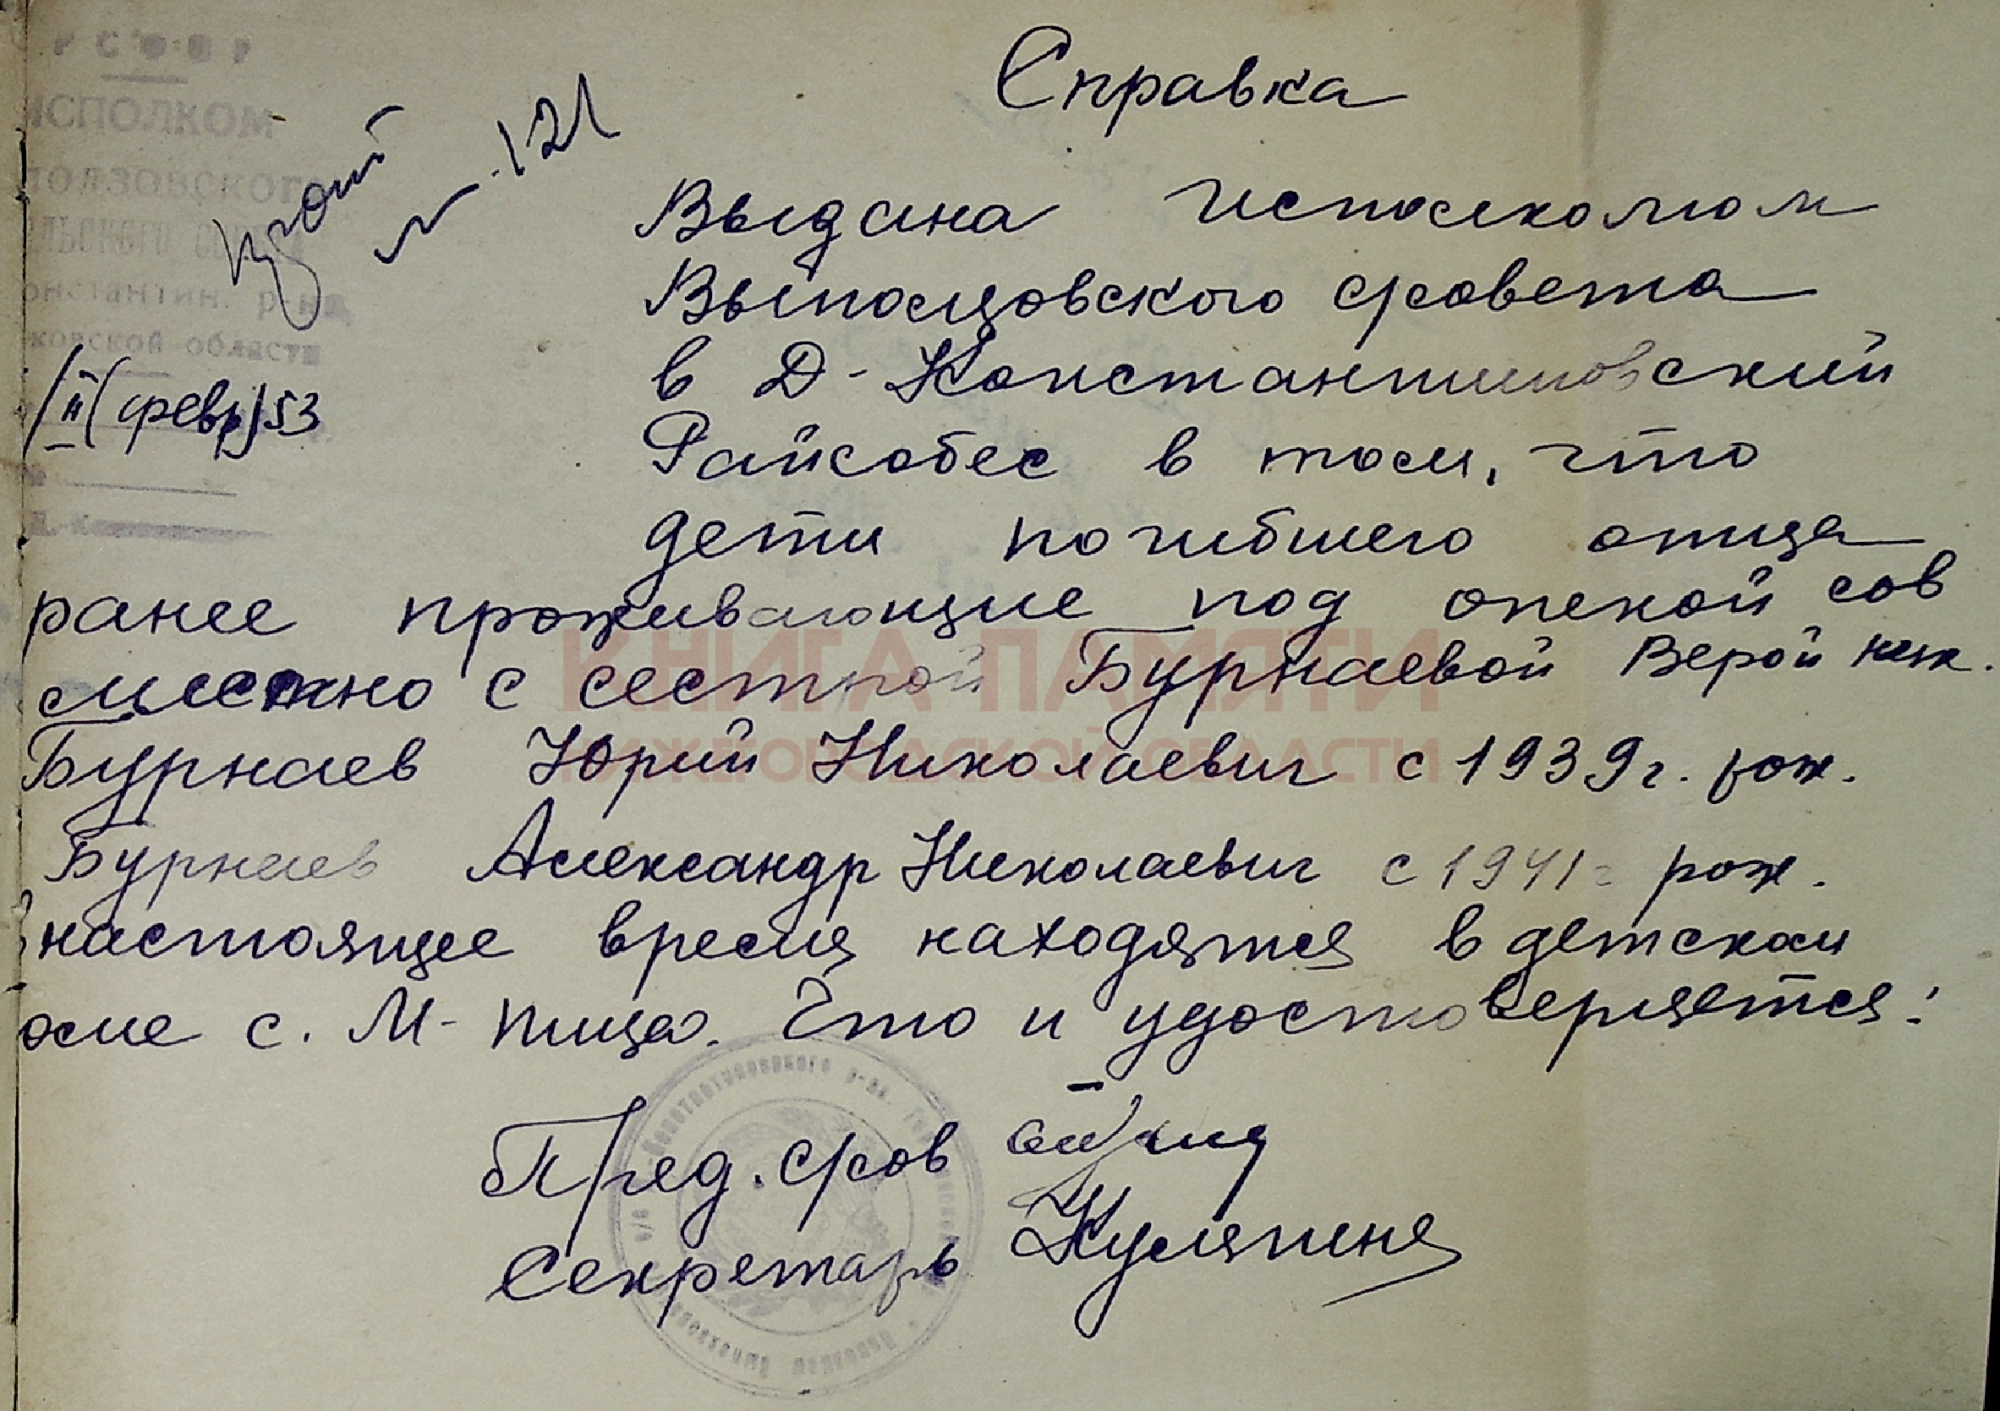 РСФСР
ИСПОЛКОМ
ползовского
ельского сов
онстантин. р-на
ковской области
№ 121
II (февр) 53
№
Справка
Выдана исполкомом
Выползовского с/совета
в Д-Константиновский
Райсобес в том, что
дети погибшего отца
ранее проживающие под опекой сов
сместно с сестрой Бурнаевой Верой Ник.
Бурнаев Юрий Николаевич с 1939 г. рож.
Бурнаев Александр Николаевич с 1941 г рож.
В настоящее время находятся в детском
оме с. М-Пица. Что и удостоверяется:
Пред. с/сов
Секретарь Куляпина
КНИГА ПАМЯТИ
НИЖЕГОРОДСКОЙ ОБЛАСТИ